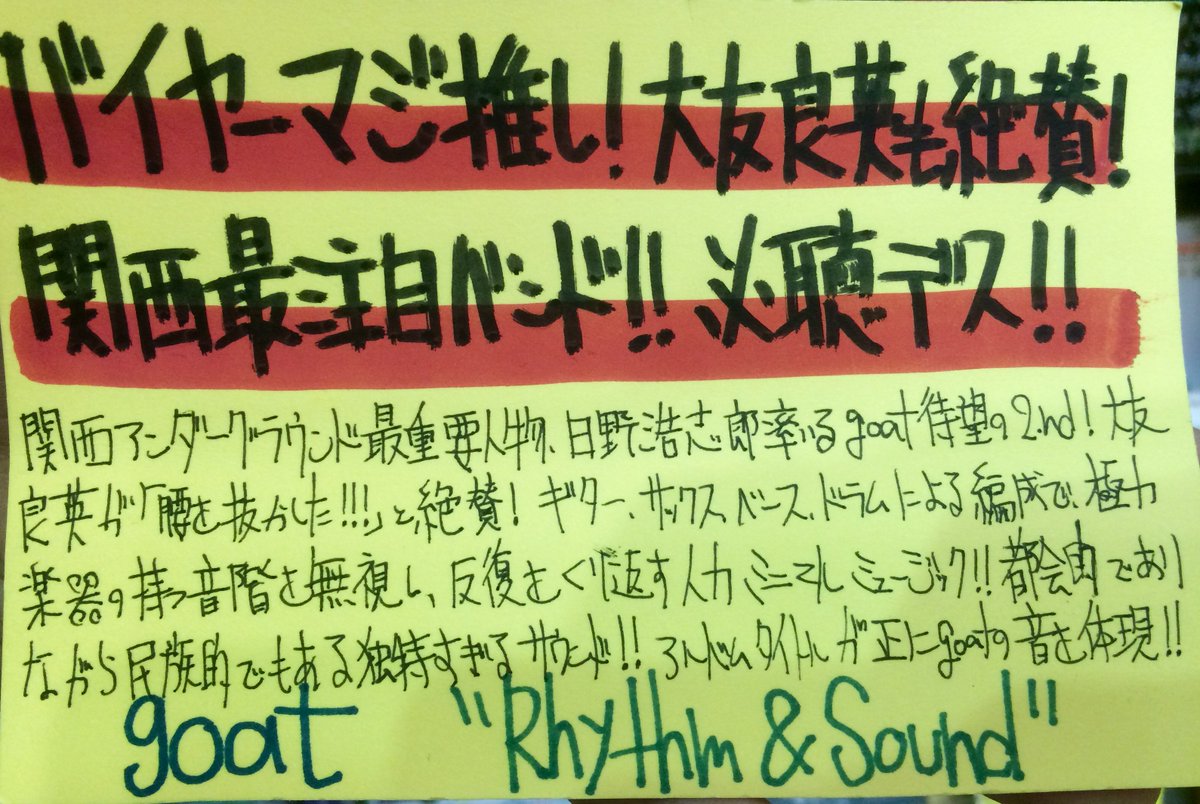 バイヤーマジ推し！大友良英も絶賛！
関西最注目バンド!!必聴デス!!
関西アンダーグラウンド最重要人物、日野浩志郎率いるgoat待望の2nd！大友
良英が「腰を抜かした!!!」と絶賛！ギター、サックス、ベース、ドラムによる編成で、極力
楽器の持つ音階を無視し、反復をくり返す人力ミニマルミュージック!!都会的であり
ながら民族的でもある独特すぎるサウンド!!アルバムタイトルが正にgoatの音を体現!!
goat "Rhythm & Sound"